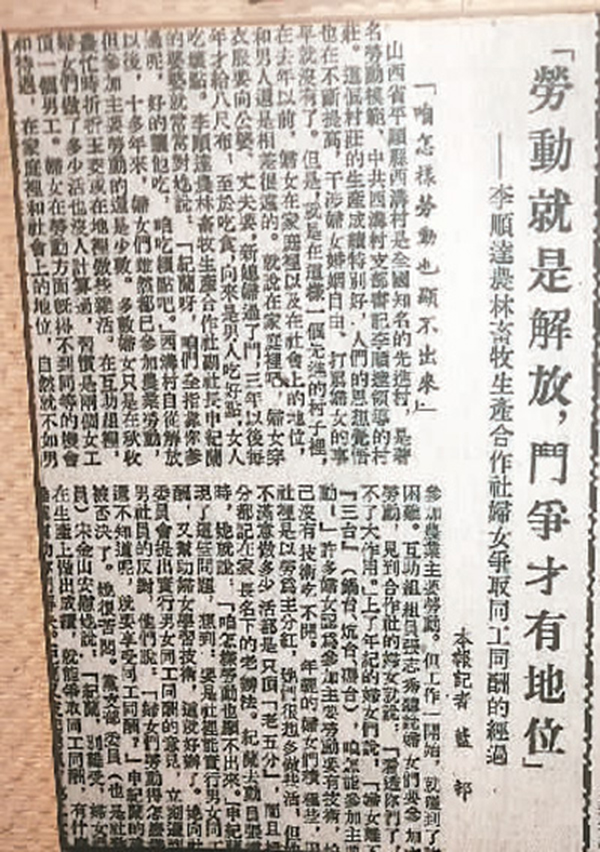 「勞動就是解放，鬥爭才有地位」
——李順達農林畜牧生產合作社婦女爭取同工同酬的經過
本報記者 藍 邨
「咱怎樣勞動也顯不出來」
山西省平順縣西溝村是全國知名的先進村，是著
名勞動模範、中共西溝村支部書記李順達領導的村
莊。這個村莊的生產成績特別好，人們的思想覺悟
也在不斷提高，干涉婦女婚姻自由、打罵婦女的事
早就沒有了。但是，就是在這樣一個先進的村子裡，
在去年以前，婦女在家庭裡以及在社會上的地位，
和男人還是相差很遠的。就說在家庭裡吧，婦女穿
衣服要向公婆、丈夫要，新媳婦過了門，三年以後每
年才給八尺布，至於吃食，向來是男人吃好點，女人
吃壞點。李順達農林畜牧生產合作社副社長申紀蘭
的婆婆就常常對她說：「紀蘭呀，咱們全指靠你爹
過呢，好的讓他吃，咱吃壞點吧。」西溝村自從解放
以後，十多年來，婦女們雖然都已參加農業勞動，
但參加主要勞動的還是少數。多數婦女只是在秋收
農忙時折折玉茭或在地裡做些雜活。在互助組裡，
婦女們做了多少活也沒人計算過，習慣是兩個女工
頂一個男工。婦女在勞動方面既得不到同等的機會
和待遇，在家庭裡和社會上的地位，自然就不如男
參加農業主要勞動。但工作一開始，就碰到了
困難。互助組組員張志秀聽說婦女們要參加
勞動，見到合作社的婦女就說：「看透你們了，
不了大作用。」上了年紀的婦女們說，「婦女離不
『三台』（鍋台、炕台、碾台），咱怎能參加主要
動！」許多婦女認為參加主要勞動要有技術，怕
己沒有技術吃不開。年輕的婦女們積極些，因
社裡是以勞為主分紅，她們很想多做些活，但她
不滿意做多少活都是只頂「老五分」，而且把
分都記在家長名下的老辦法。紀蘭去動員張
時，她就說：「咱怎樣勞動也顯不出來。」申紀蘭
現了這些問題，想到：要是社裡能實行男女同工
酬，又幫助婦女學習技術，這就好辦了。她向社
委員會提出實行男女同工同酬的意見，立刻遭到
男社員的反對，他們說：「婦女們勞動得怎麼樣
還不知道呢，就要享受同工同酬？」申紀蘭的意
被否決了。她很苦悶。黨支部委員（也是社
員）宋金山安慰她說：「紀蘭，別難受，婦女
在生產上做出成績，就能爭取同工同酬，有什